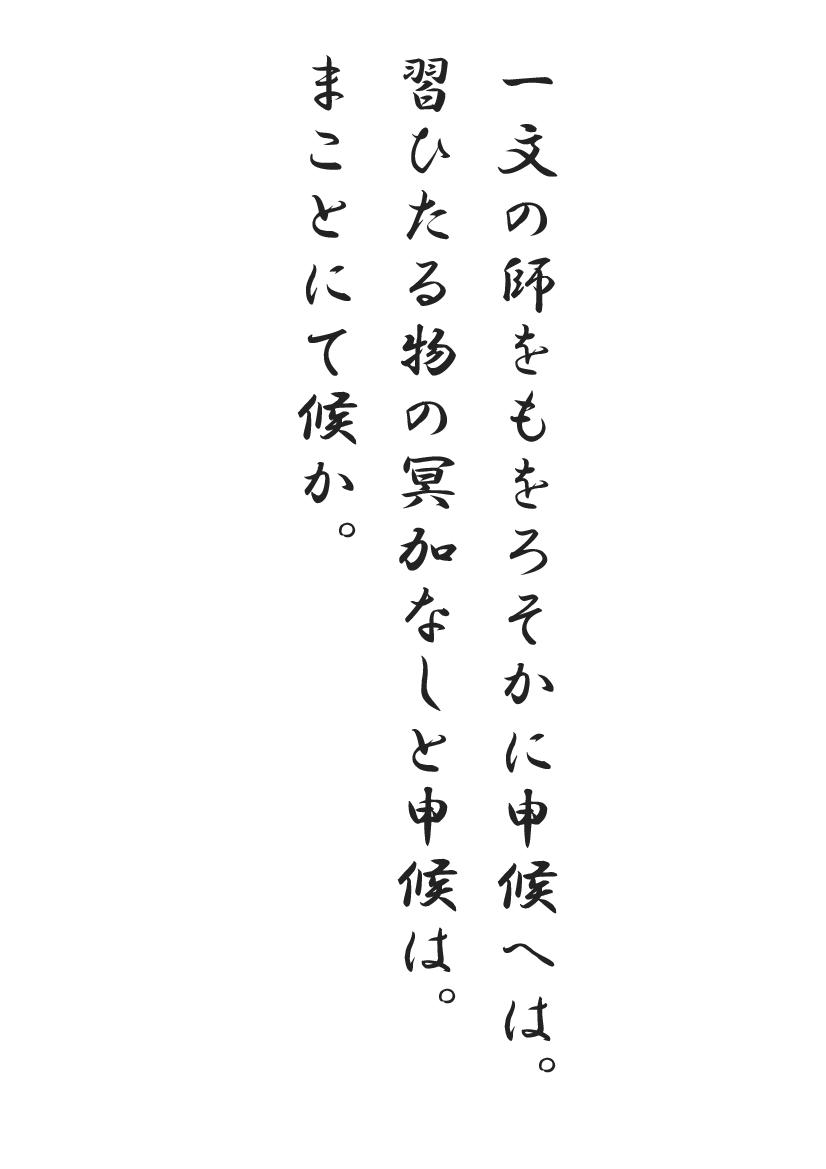 一文の師をもをろそかに申候へは。
習ひたる物の冥加なしと申候は。
まことにて候か。